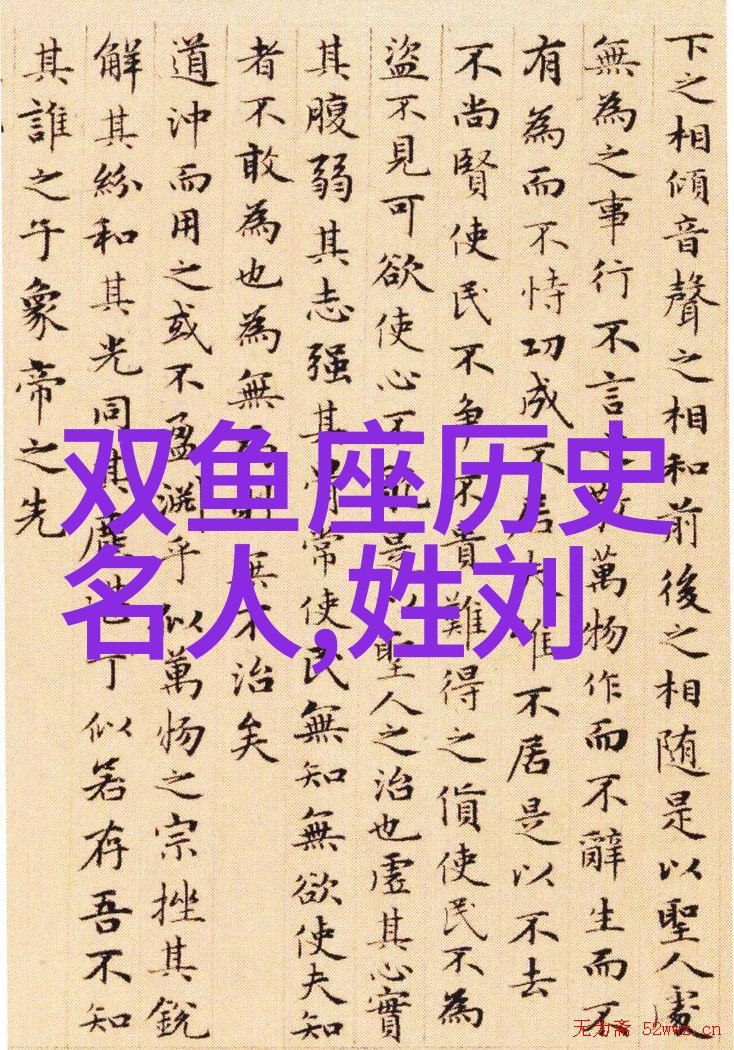 下之相傾音聲之相和前後之相随是以聖人處
無為之事行不言之教萬物作而不辭生而不
有為而不恃功成不居夫唯不居是以不去
不尚賢使民不争不貴難得之貨使民不為
盜不見可欲使心不亂是以聖人之治也虛其心實
其腹弱其志强其骨常使民無知無欲使夫知
者不敢為也為無為則無不治矣
道沖而用之或不盈淵乎似萬物之宗挫其銳
解其紛和其光同其塵湛兮似若存吾不知
其誰之子象帝之先
双鱼座历史
名人,姓刘
无为斋 52wwz.cn